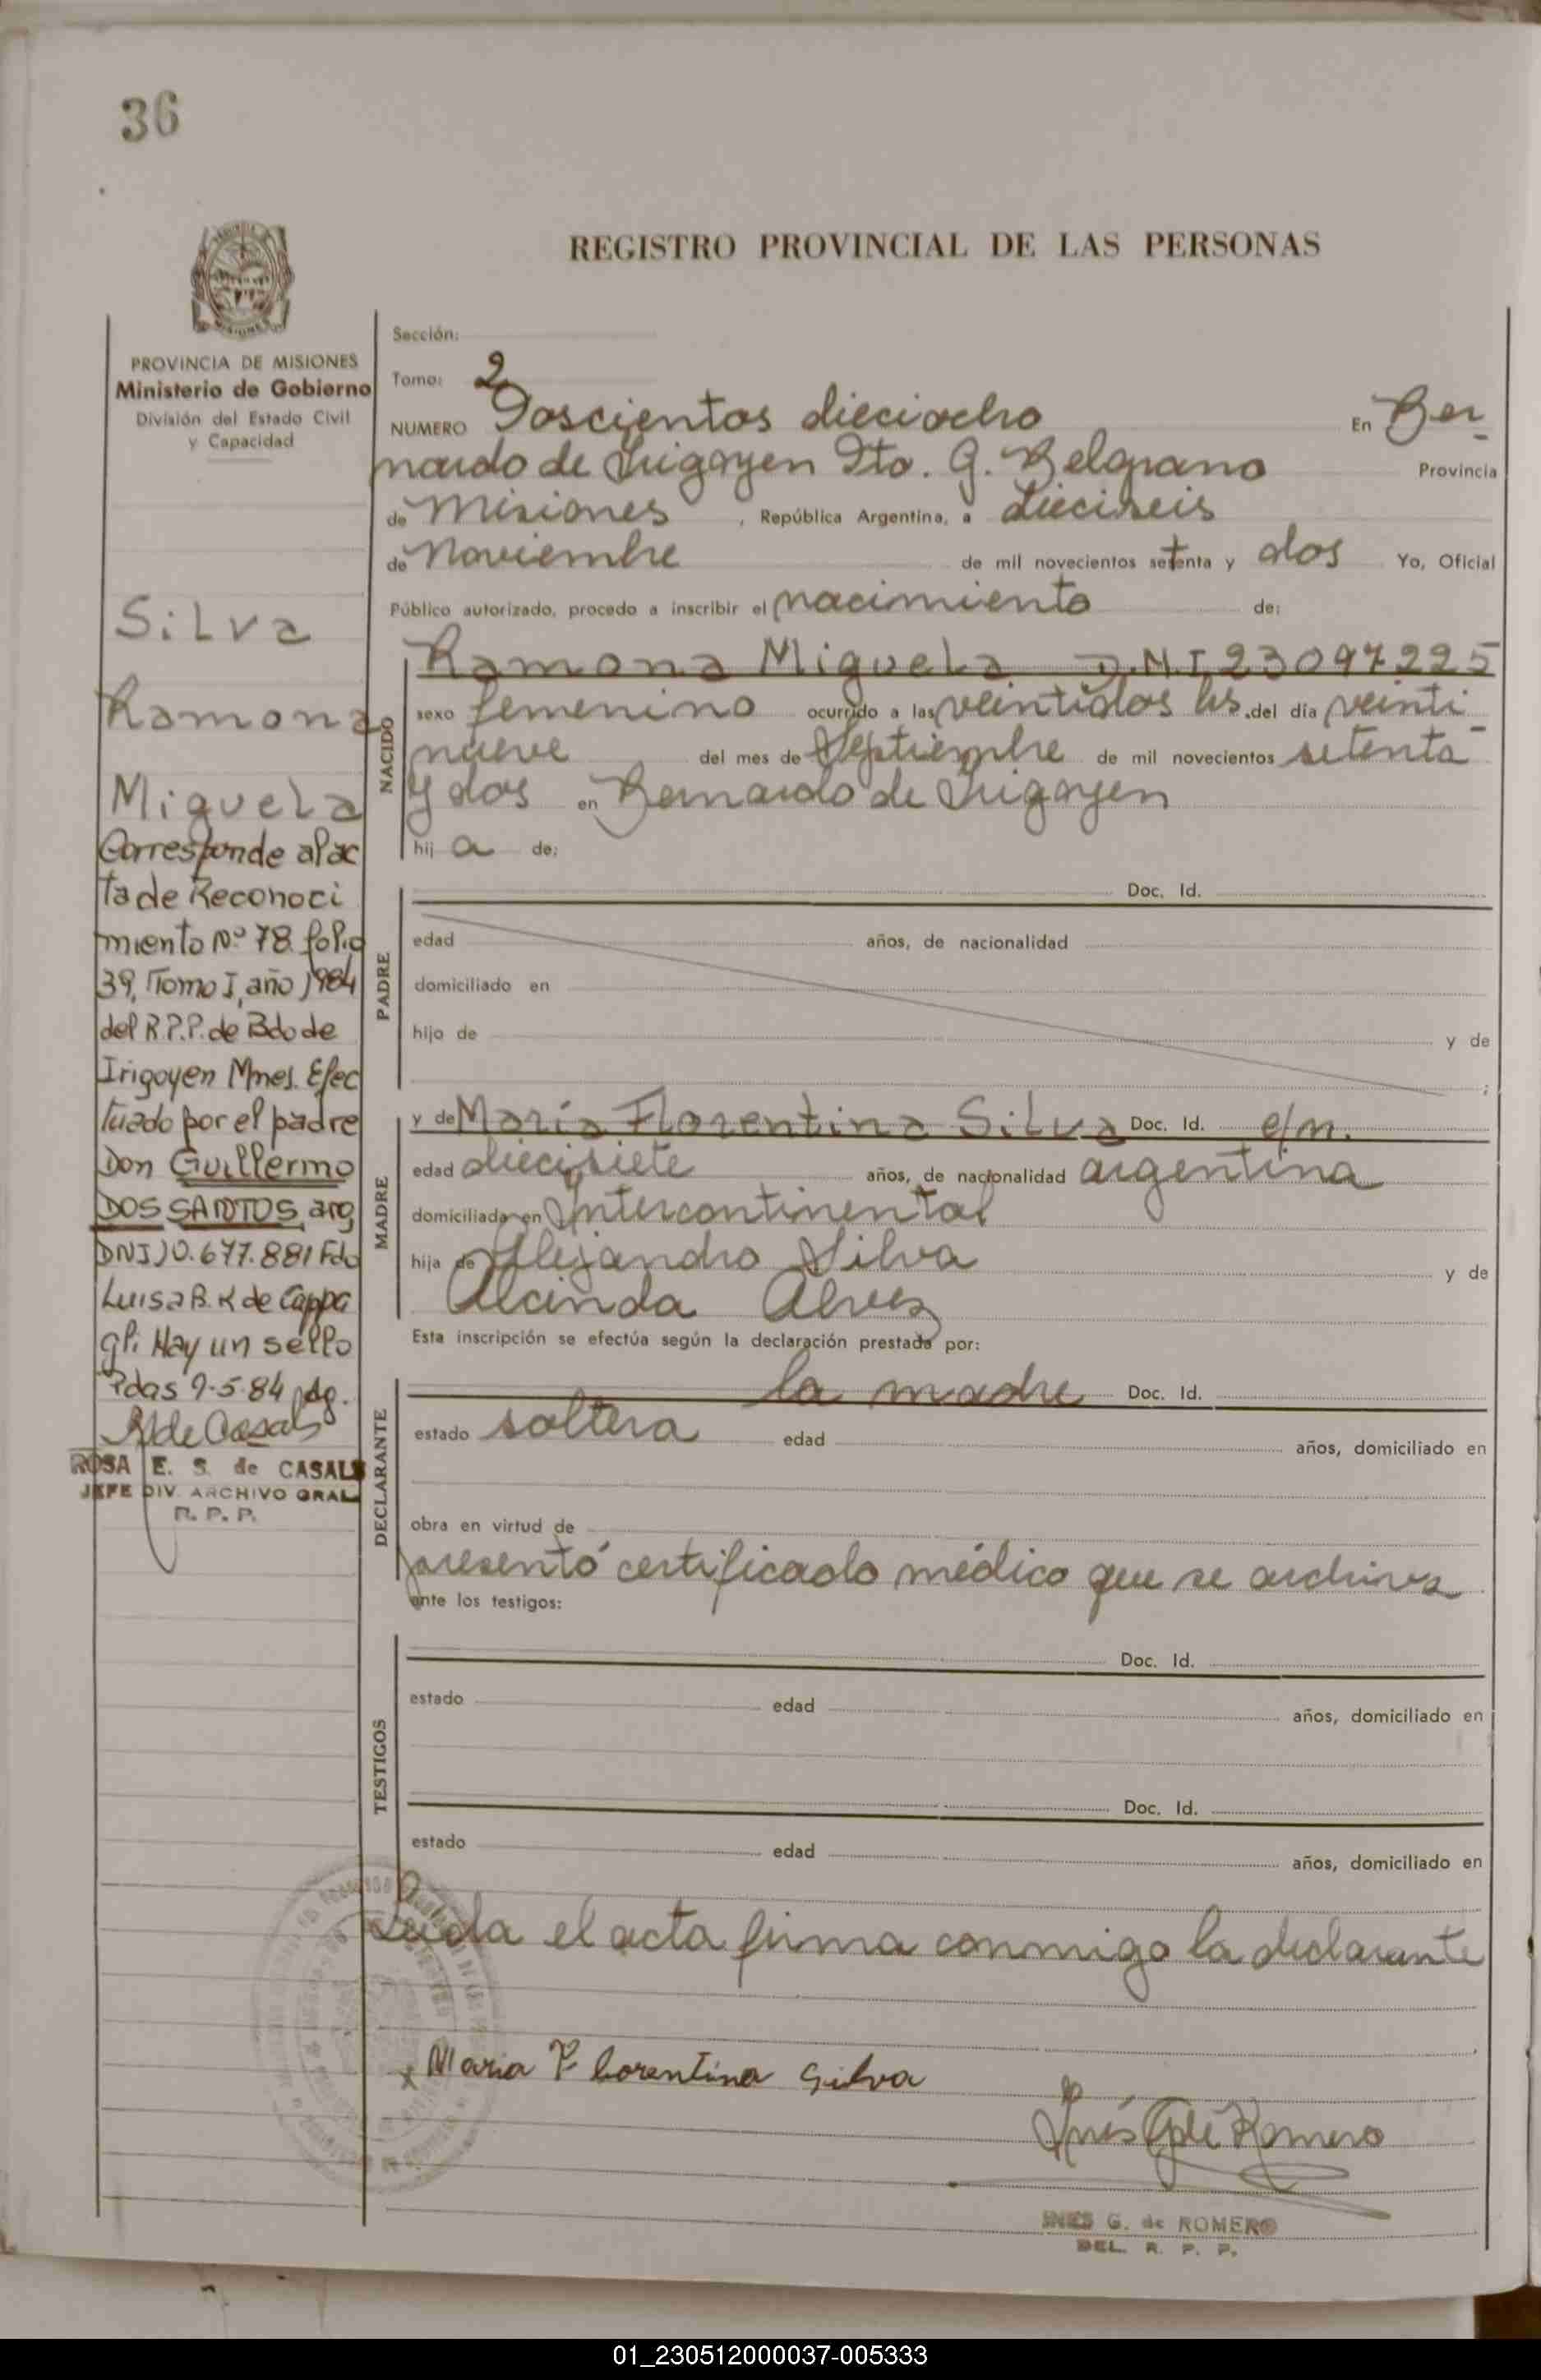 36
REGISTRO PROVINCIAL DE LAS PERSONAS
PROVINCIA DE MISIONES
Ministerio de Gobierno
División del Estado Civil
y Capacidad
Silva
Ramona
Miguela
Corresponde al ac
ta de Reconoci
miento Nº 78 folio
39, Tomo I, año 1984
del R.P.P. de Bdo de
Irigoyen Mnes. Efec
tuado por el padre
Don Guillermo
DOS SANTOS, arg
DNI 10.677.881 Fdo
Luisa B. K de Cappa
gli Hay un sello
Pdas 9-5-84
ROSA E. S. de CASALS
JEFE DIV. ARCHIVO GRAL
R. P. P.
Sección:
Tomo: 2
NUMERO Doscientos dieciocho En Ber
nardo de Irigoyen Dto. G. Belgrano Provincia
de Misiones, República Argentina, a dieciseis
de Noviembre de mil novecientos setenta y dos Yo, Oficial
Público autorizado, procedo a inscribir el nacimiento de:
NACIDO
Ramona Miguela D.N.I 23097225
sexo femenino ocurrido a las veintidos hs. del día veinti
nueve del mes de Septiembre de mil novecientos setenta
y dos en Bernardo de Irigoyen
hij a de:
PADRE
Doc. Id.
edad años, de nacionalidad
domiciliado en
hijo de y de
;
MADRE
y de María Florentina Silva Doc. Id. e/n.
edad diecisiete años, de nacionalidad argentina
domiciliada en Intercontinental
hija de Alejandro Silva y de
Alcinda Alvez
Esta inscripción se efectúa según la declaración prestada por:
DECLARANTE
la madre Doc. Id.
estado soltera edad años, domiciliado en
obra en virtud de
presentó certificado médico que se archiva
ante los testigos:
TESTIGOS
Doc. Id.
estado edad años, domiciliado en
Doc. Id.
estado edad años, domiciliado en
Leida el acta firma conmigo la declarante
x Maria Florentina Silva
Inés G de Romero
INES G. de ROMERO
DEL. R. P. P.
01_230512000037-005333